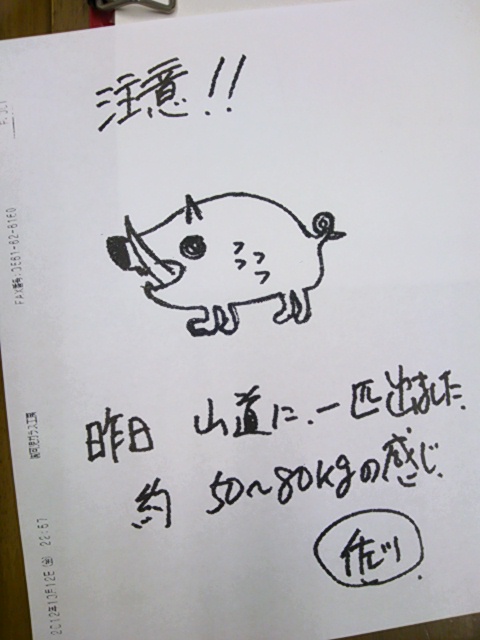 注意!!
昨日 山道に、一匹出ました。
約 50〜80kgの感じ。
FAX番号:0561-62-8160
2012年10月12日(金) 22:57